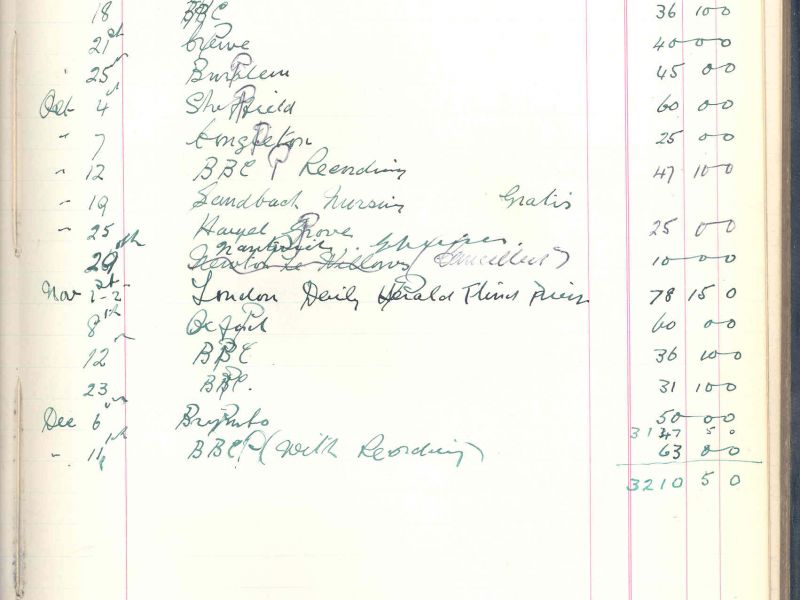 18 BBC 36 10 0
21st Crewe 40 0 0
25 Burslem 45 0 0
Oct 4 Sheffield 60 0 0
" 7 Congleton 25 0 0
" 12 BBC P Recording 47 10 0
" 19 Sandbach Nursing Gratis
" 25 Hazel Grove 25 0 0
Nantwich
29 Newton Le Willows (Cancelled) 10 0 0
Nov 1-2 London Daily Herald Third Prize 78 15 0
8th Oxford 60 0 0
12 BBC 36 10 0
23 BBC. 31 10 0
Dec 6 50 0 0
3147 5 0
" 11 BBC P (With Recording) 63 0 0
3210 5 0